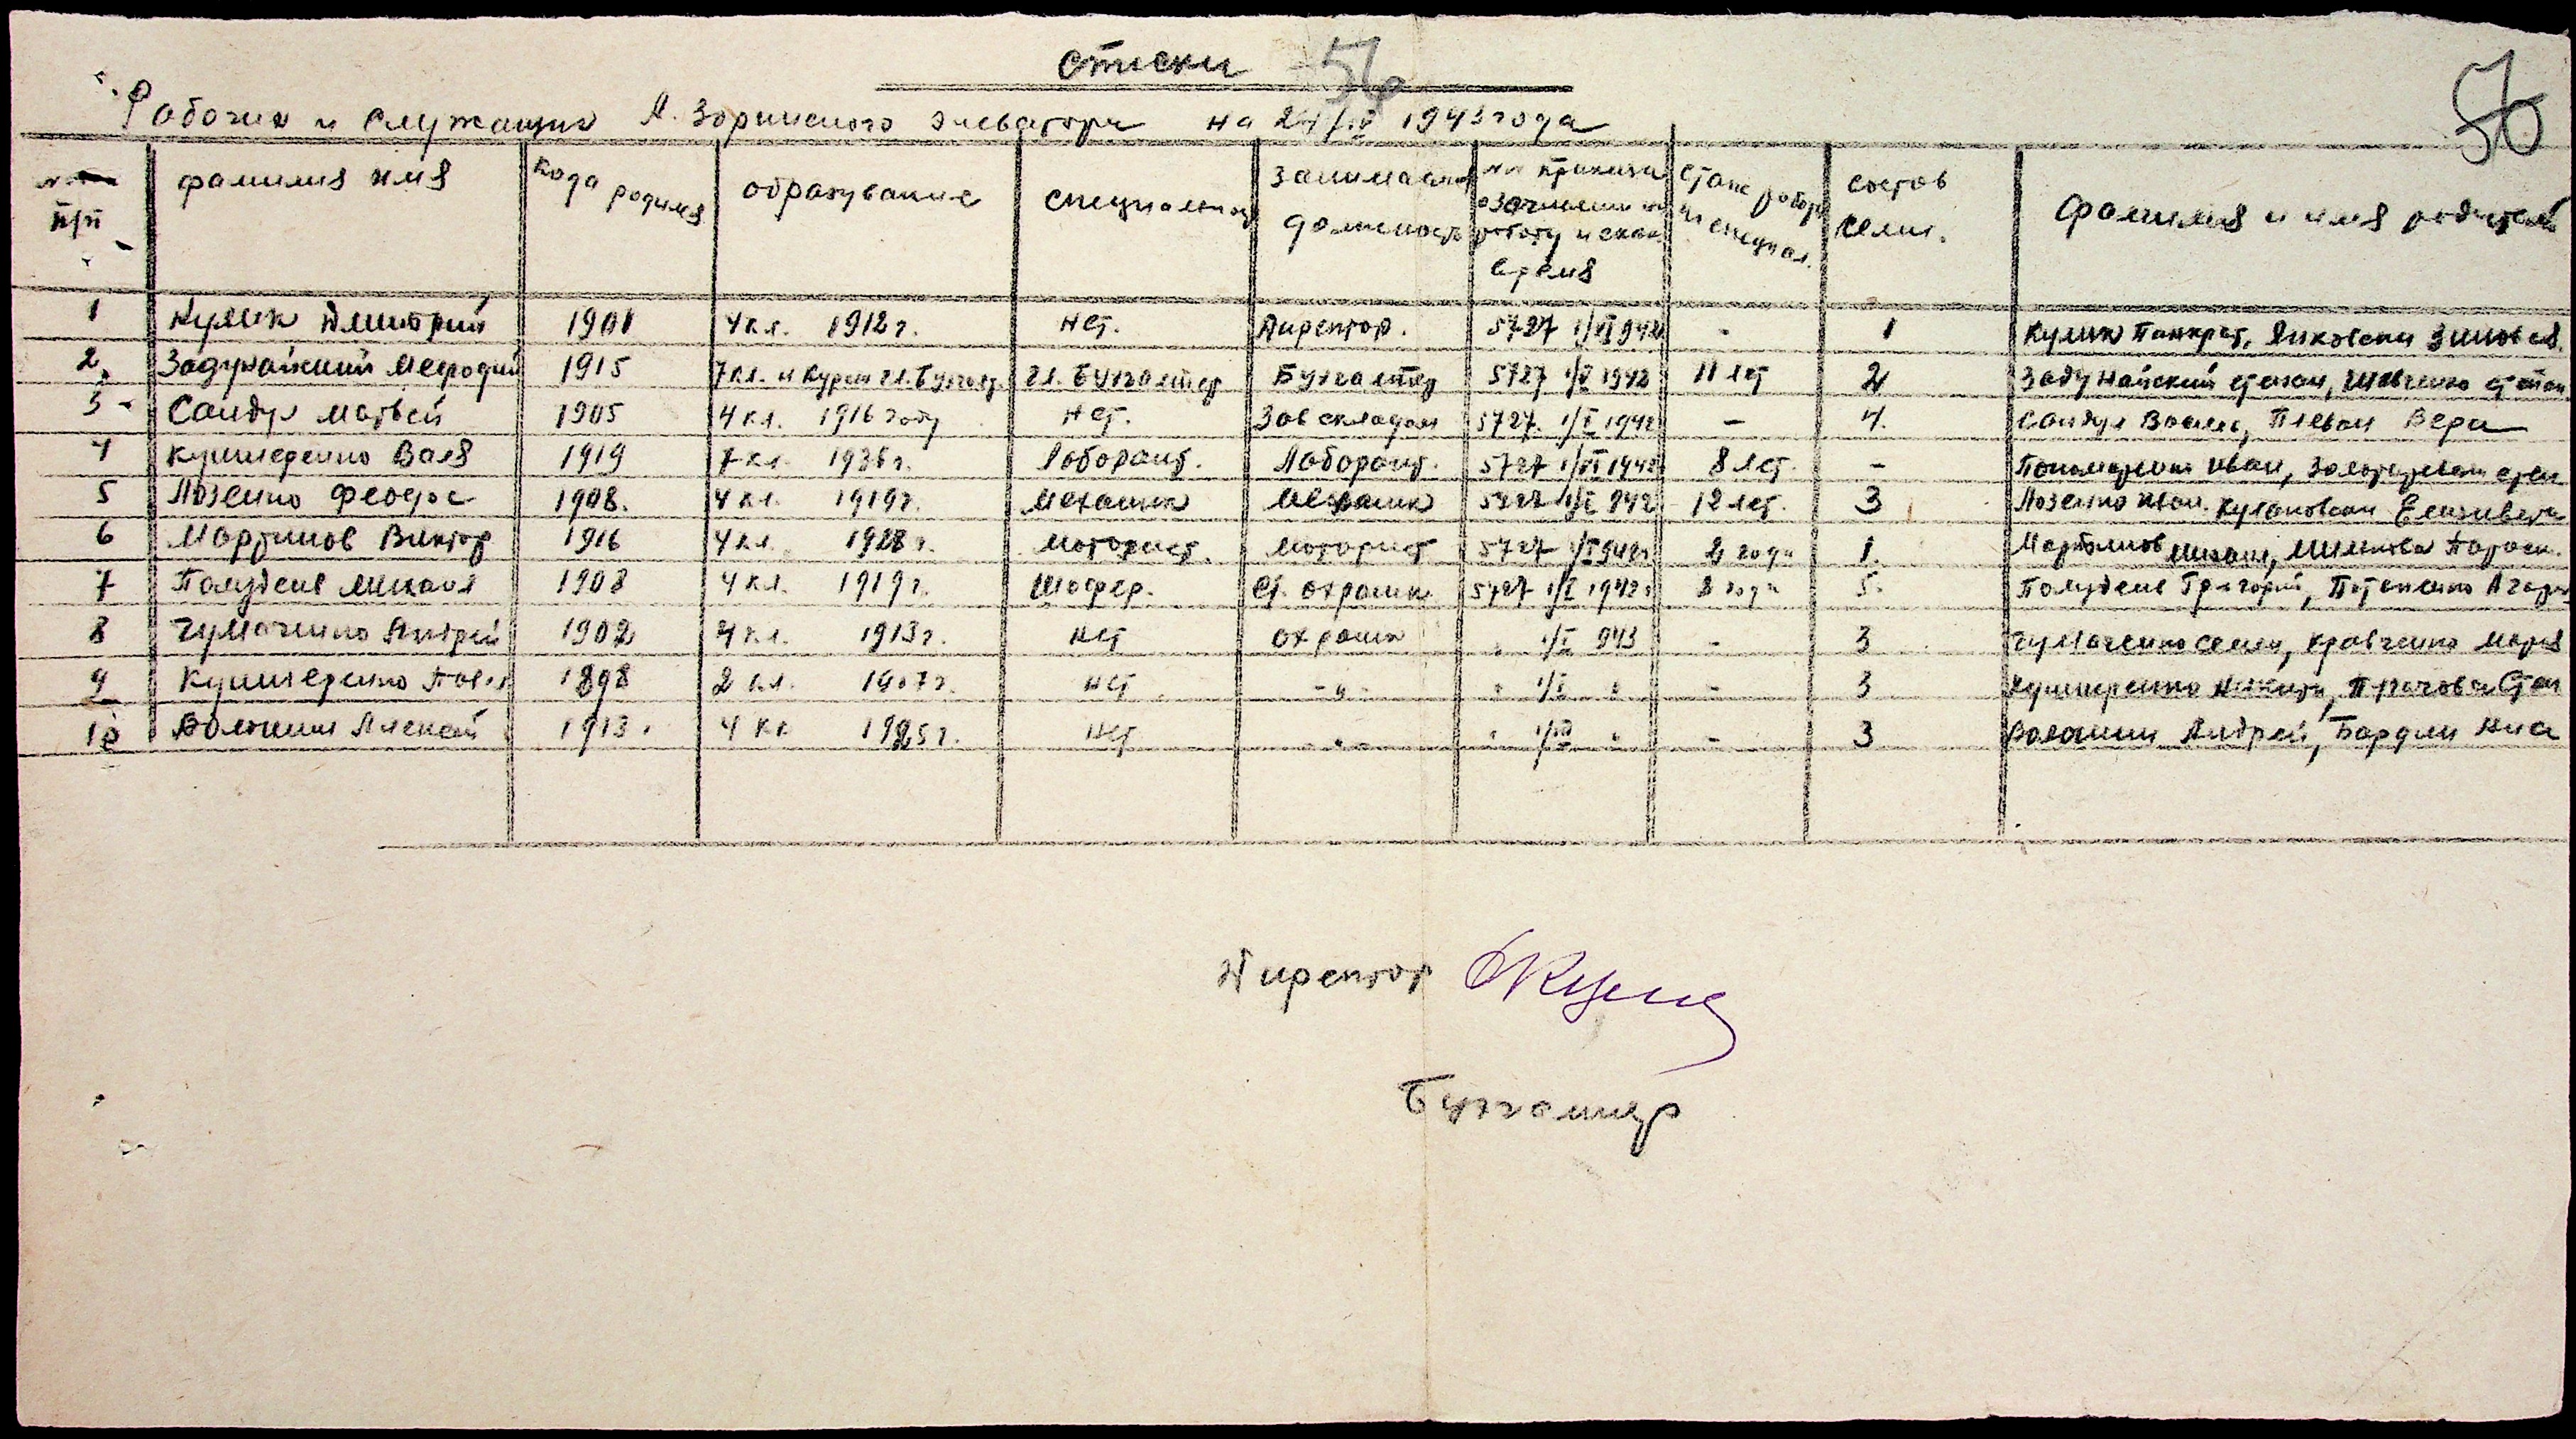 списки 56
56
Рабочих и служащих Л. Зоринского элеватора на 24/IV 1943 года
п/п фамилия имя кода родился образувание специальност занимаем должность приказа зачислении на работу и с како время стаж работы специал. состав семи. фамилия и имя родителей
1 Кулик Дмитрий 1901 4 кл. 1912 г. нет. Директор. 5727 1/VI 942 - 1 Кулик Панкрат, Янковская Зиновея
2. Задунайский Мефодий 1915 7 кл. и Курси гл. Бухгалт. гл. Бухгалтер Бухгалтер 5727 1/I 1942 11 лет 2 Задунайский степан, Шевченко степан
3 - Сандул Матвей 1905 4 кл. 1916 году нет. Зав складом 5727. 1/I 1942 - 4. Сандул Васил, Плеван Вера
4 Кушнеренко Валя 1919 7 кл. 1936 г. Лоборант. Лоборант. 5727 1/VI 1942 8 лет. - Иван,
5 Лозенко Феодос 1908. 4 кл. 1919 г. Механик Механик 5727 1/I 942 12 лет. 3 Лозенко Иван. Кулановская Елизавета
6 Мартинов Виктор 1916 4 кл. 1928 г. Моторист. Моторист 5727 1/I 942 г 2 года 1. Мартинов Михаил, Параск.
7 Полудень Михаил 1908 4 кл. 1919 г. Шофер. Ст. охраник 5727 1/I 1942 г 2 года 5. Полудень Григорий, Потапенко
8 Чумаченко Андрей 1902 4 кл. 1913 г. нет охраник " 1/I 943 - 3 Чумаченко Семен, Кравченко Мария
9 Кушнеренко Павел 1898 2 кл. 1907 г. нет -"- " 1/I " - 3 Кушнеренко Никита, Прачова Степ
10 Волошин Алексей 1913. 4 кл 1925 г. нет " " 1/III " - 3 Волошин Андрей, Бардли
Директор ДКулик
Бухгалтер